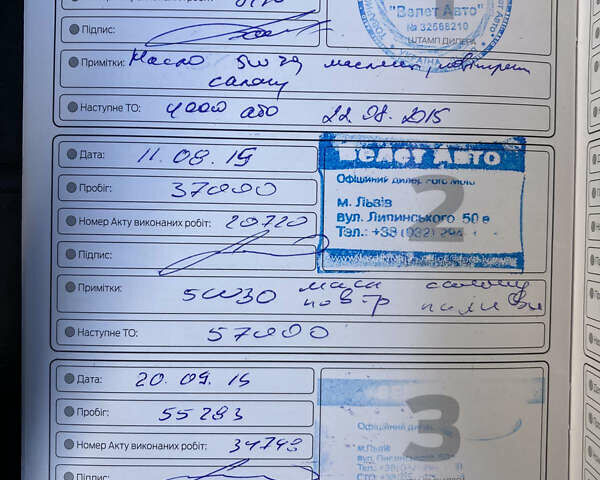 Підпис:
"Велет Авто"
№ 32568210
ШТАМП ДИЛЕРА
УКРАЇНА
Примітки: Масло 5w30 масляний, повітряний
салону
Наступне ТО: або 22.08.2015
Дата: 11.08.15
Велет Авто
Офіційний дилер
2
Пробіг: 37000
м. Львів
вул. Липинського, 50 в
Номер Акту виконаних робіт: 20720
Тел.: +38 (032) 294
Підпис:
Примітки: 5W30 масл салону
пов-тр паливн
Наступне ТО: 57000
Дата: 20.09.15
3
Пробіг: 55283
Офіційний дилер
Номер Акту виконаних робіт: 34743
м.Львів
вул. Липинського, 50
Тел.: +38
Підпис: